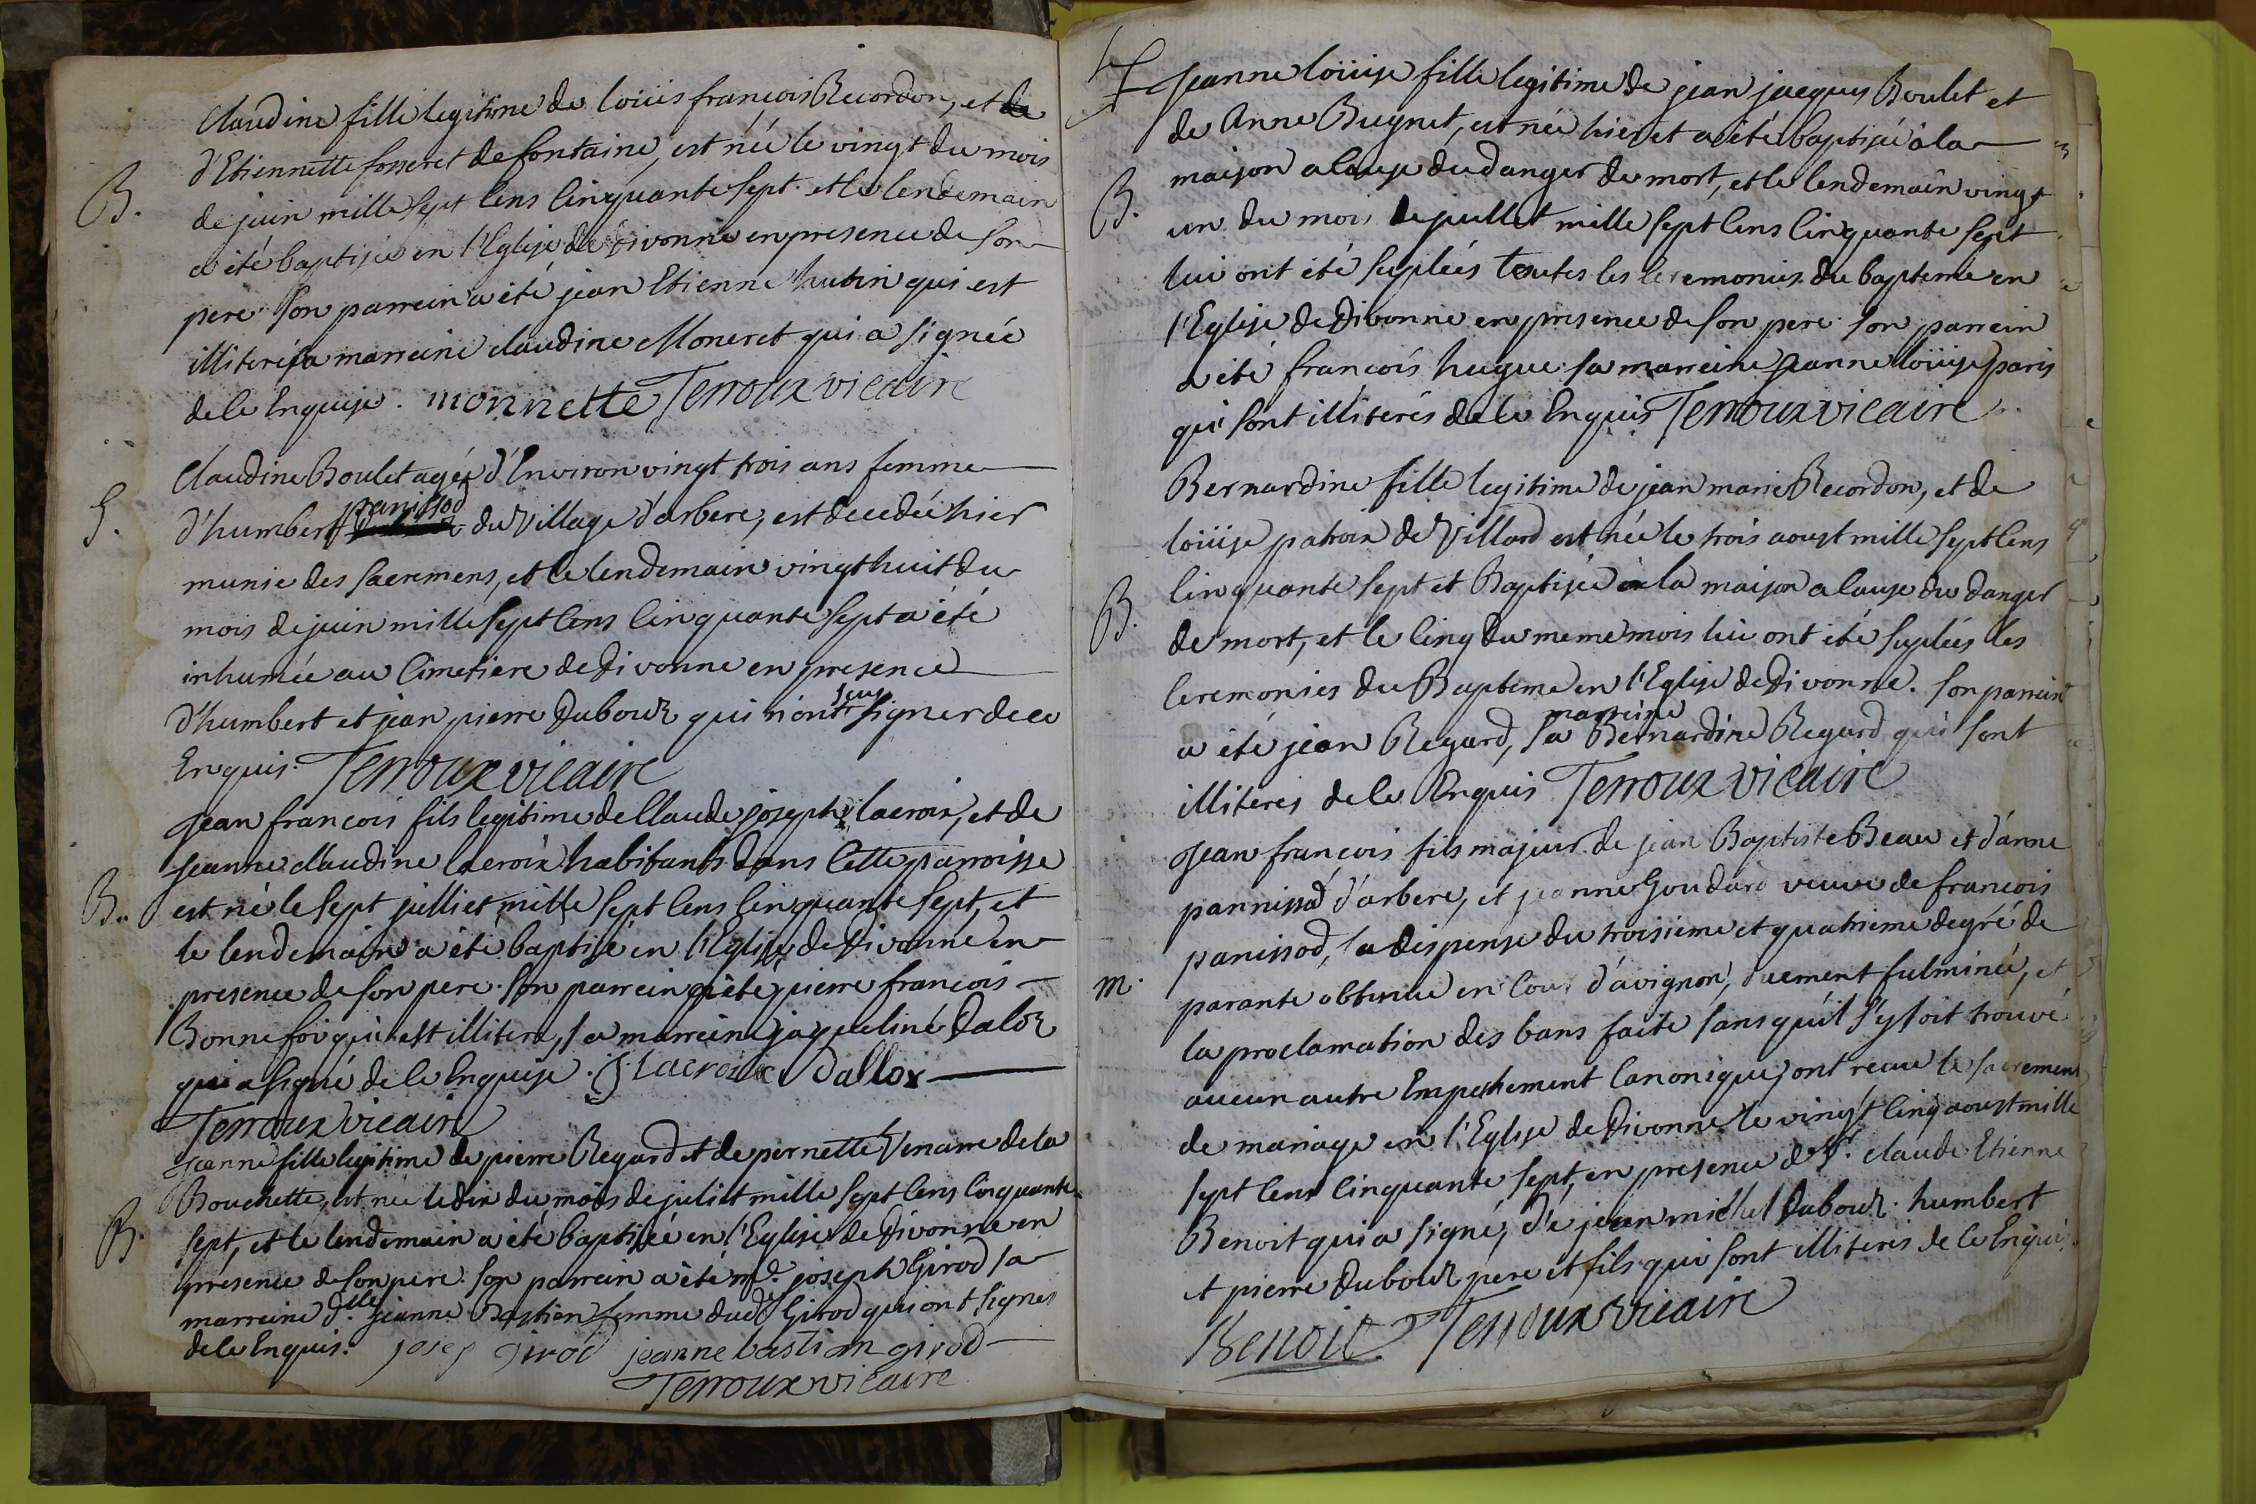 Claudine fille legitime de loüis françois Recordon, et de
d'Etiennette fosseret de fontaine, est née le vingt du mois
B.
de juin mille sept cens cinquante sept. et le lendemain
a été baptisée en l'Eglise de Divonne en presence de son
pere son parrein a été jean Etienne hutin qui est
illiteré sa marreine claudine Moneret qui a signée
de ce Enquise. monnette Terroux vicaire
Claudine Boulet agée d'Environ vingt trois ans femme
S.
d'humbert panissod du Village d'arbere, est decedée hier
munie des sacremens, et le lendemain vingt huit du
mois de juin mille sept cens cinquante sept a été
inhumée au Cimetiere de Divonne en presence
d'humbert et jean pierre Dubour qui n'ont sçeu signer de ce
Enquis. Terroux vicaire
Jean françois fils legitime de Claude joseph lacroix, et de
jeanne claudine lacroix habitants dans Cette parroisse
B.
est né le sept julliet mille sept cens cinquante sept, et
le lendemain a été baptisé en l'Eglise de Divonne en
presence de son pere. son parrein a été pierre françois
Bonnefoi qui est illiteré, sa marreine jaqueline Daloz
qui a signé de ce Enquise. J. Lacroix Dallox
Terroux vicaire
Jeanne fille legitime de pierre Regard et de pernette Venarre de la
Bouchette, est née le dix du mois de juliet mille sept cens cinquante
B.
sept, et le lendemain a été baptisée en l'Eglise de Divonne en
presence de son pere. son parrein a été md. joseph Girod sa
marreine dlle jeanne Bastian femme dudt Girod qui ont signés
de ce Enquis. josep girod jeanne bastian girod
Terroux vicaire
Jeanne loüise fille legitime de jean jacques Boulet et
de Anne Bugnet, est née hier et a été baptisée à la
B.
maison a cause du danger de mort, et le lendemain vingt
un du mois de juillet mille sept cens cinquante sept
lui ont été suplées toutes les Ceremonies du bapteme en
l'Eglise de Divonne en presence de son pere. son parrein
a été françois hugue sa marreine jeanne loüise paris
qui sont illiterés de ce Enquis Terroux vicaire
Bernardine fille legitime de jean marie Recordon, et de
loüise patroix de Villard est née le trois aoust mille sept cens
B.
cinquante sept et Baptisée à la maison a cause du danger
de mort, et le cinq du meme mois lui ont été suplées les
ceremonies du Bapteme en l'Eglise de Divonne. son parrein
a été jean Regard, sa marreine Bernardine Regard qui sont
illiterés de ce Enquis Terroux vicaire
Jean françois fils majeur de jean Baptiste Beau et d'anne
pannissod d'arbere, et jeanne Goudard veuve de françois
panissod, la dispense du troisieme et quatrieme degré de
m.
parante obtenue en Cour d'avignon, duement fulminée, et
la proclamation des bans faite sans qu'il s'y soit trouvé
aucun autre Empechement Canonique, ont receu le sacrement
de mariage en l'Eglise de Divonne le vingt cinq aoust mille
sept cens cinquante sept, en presence de Sr. claude Etienne
Benoit qui a signé, de jean michel Dubour. humbert
et pierre Dubour pere et fils qui sont illiterés de ce Enquis.
Benoit Terroux vicaire